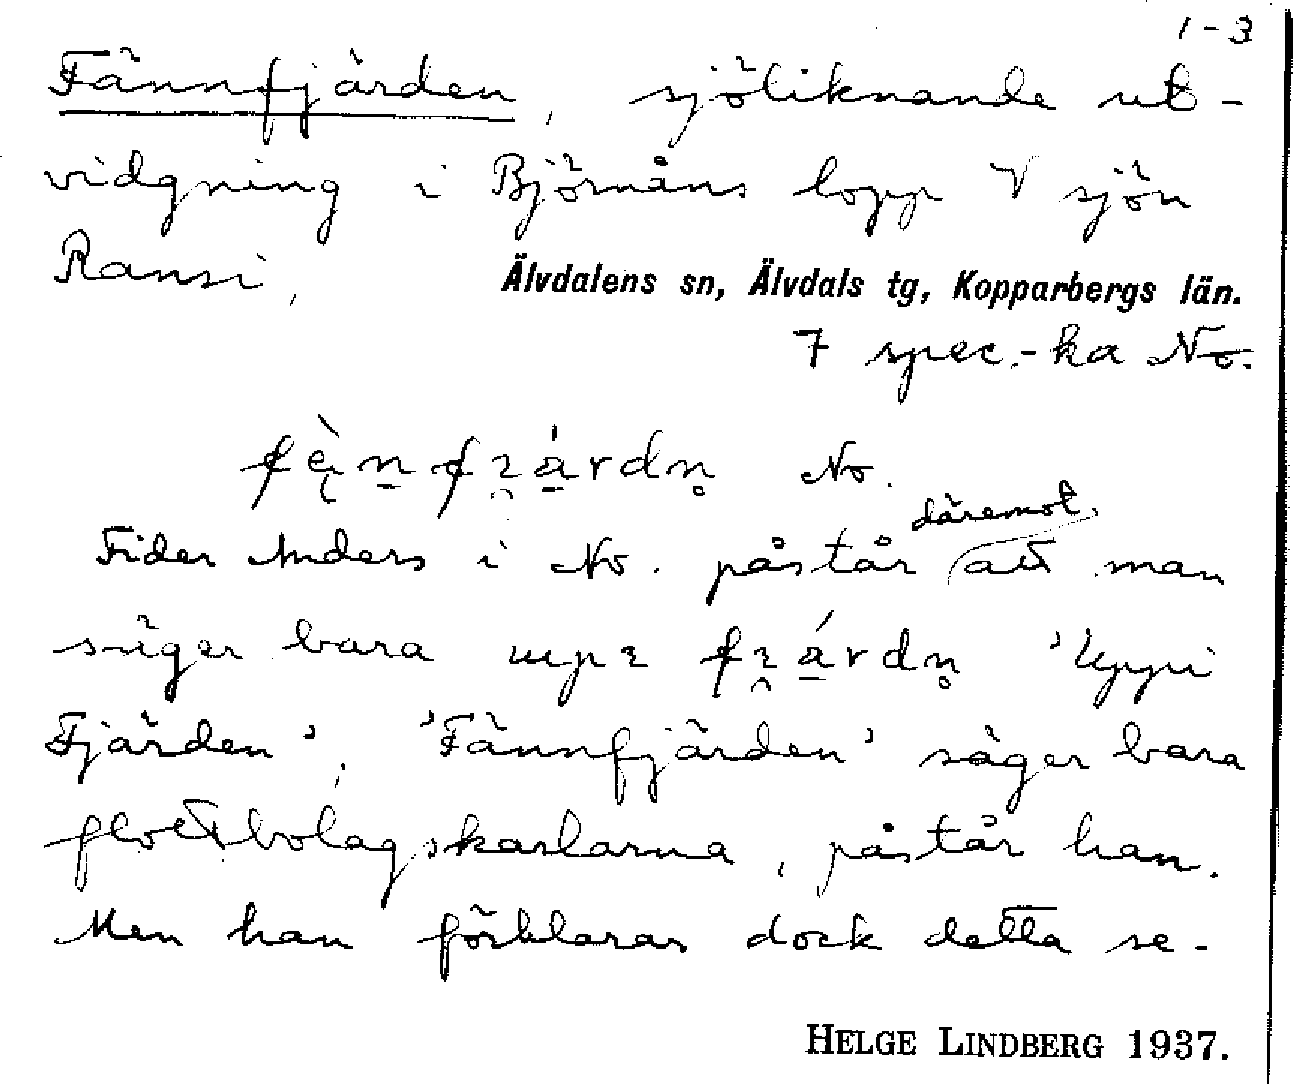 1-3
Fännfjärden, sjöliknande ut-
vidgning i Björnåns lopp V sjön
Ransi,
Älvdalens sn, Älvdals tg, Kopparbergs län.
7 spec.-ka No.
No.
däremot
Fider Anders i No. påstår att man
säger bara 'Uppi
Fjärden'; 'Fännfjärden' säger bara
flottbolagskarlarna, påstår han.
Men han förklarar dock detta se-
HELGE LINDBERG 1937.